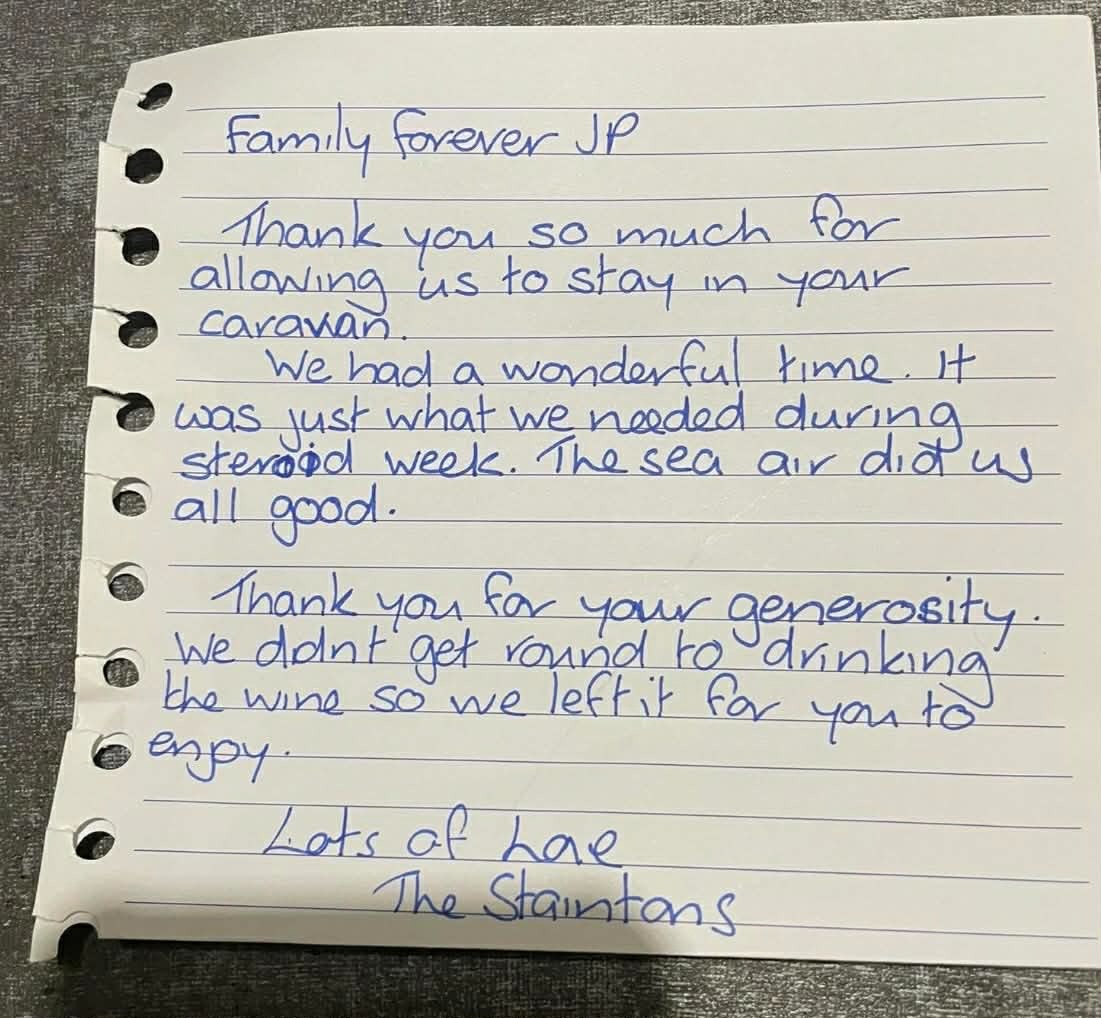 Family forever JP
Thank you so much for
allowing us to stay in your
caravan.
We had a wonderful time. It
was just what we needed during
steroid week. The sea air did us
all good.
Thank you for your generosity.
We didnt get round to drinking
the wine so we left it for you to
enjoy.
Lots of Love
The Staintons